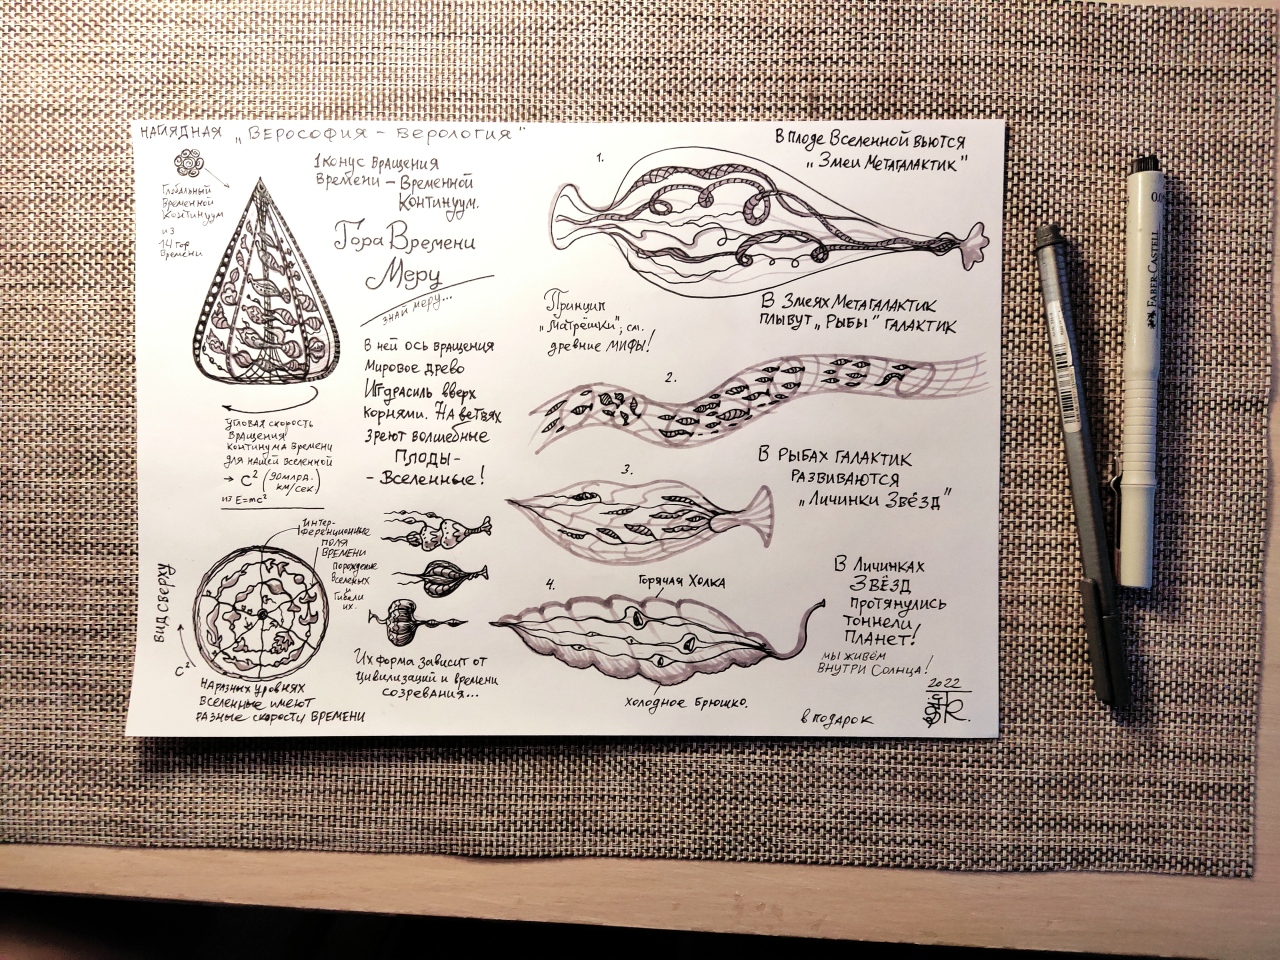 НАГЛЯДНАЯ „ВЕРОСОФИЯ - ВЕРОЛОГИЯ"
Глобальный
Временной
Континуум
из
14 гор
Времени
1 конус вращения
Времени - Временной
Континуум.
Гора Времени
Меру
знай меру...
В ней ось вращения
Мировое древо
Игдрасиль вверх
корнями. На ветвях
зреют волшебные
Плоды-
- Вселенные!
угловая скорость
вращения
континума времени
для нашей вселенной
→ C² (90 млрд. км/сек)
из E=mc²
Интер-
ференционные
поля
времени
порождение
вселеных
и гибели
их.
вид сверху
C²
На разных уровнях
вселенные имеют
разные скорости времени
Их форма зависит от
цивилизаций и времени
созревания...
1.
В плоде Вселенной вьются
„Змеи Метагалактик"
Принцип
„Матрёшки", см.
древние МИФЫ!
В Змеях Метагалактик
плывут „Рыбы" Галактик
2.
3.
В Рыбах Галактик
развиваются
„Личинки Звёзд"
4.
Горячая Холка
Холодное Брюшко.
В Личинках
Звёзд
протянулись
тоннели
Планет!
мы живём
внутри Солнца!
в подарок
2022
FABER-CASTELL